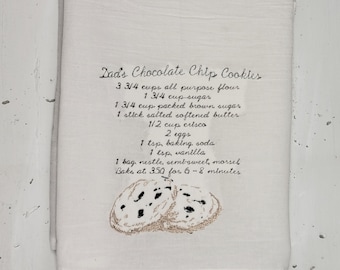 Dad's Chocolate Chip Cookies
3 3/4 cups all purpose flour
1 1/4 cup sugar
1 3/4 cup packed brown sugar
1 stick salted softened butter
1/2 cup crisco
2 eggs
1 tsp. baking soda
1 tsp. vanilla
1 bag nestle, semisweet, morsels
Bake at 350 for 6-8 minutes